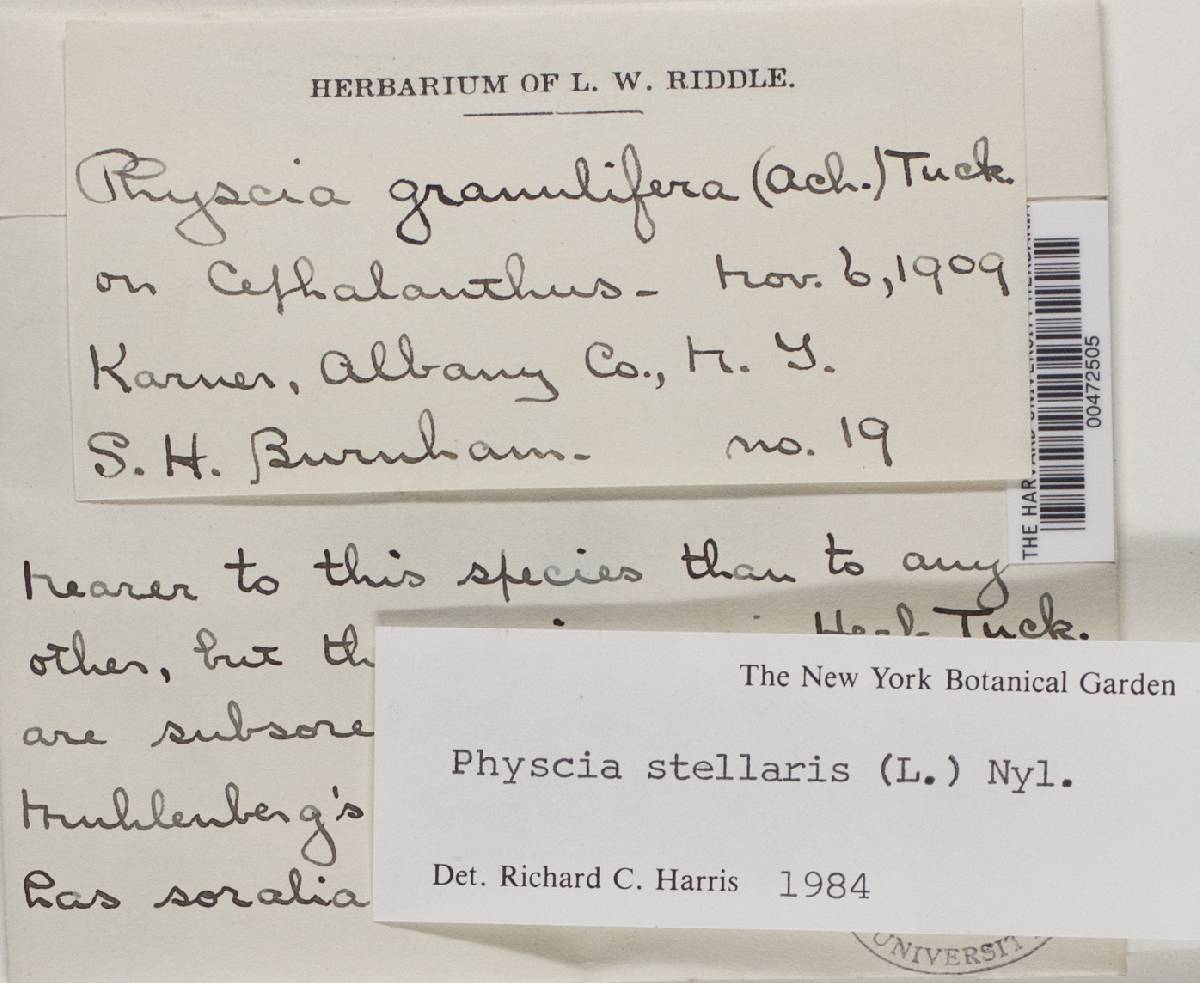 HERBARIUM OF L. W. RIDDLE.
Physcia granulifera (Ach.) Tuck.
on Cephalanthus- Nov. 6, 1909
Karner, Albany Co., N. Y.
S. H. Burnham- no. 19
THE HARVARD UNIVERSITY HERBARIA
00472505
nearer to this species than to any
other, but Tuck.
are
Muhlenberg's
has soralia
The New York Botanical Garden
Physcia stellaris (L.) Nyl.
Det. Richard C. Harris 1984
UNIVERSIT